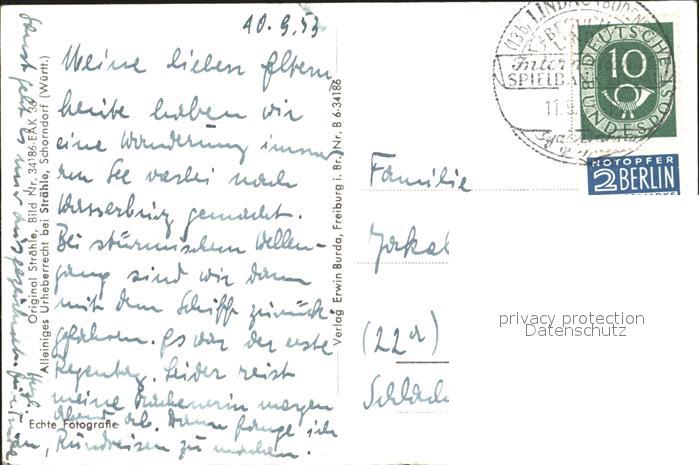 10.9.53
Meine lieben Eltern,
heute haben wir
eine Wanderung immer
am See vorbei nach
Wasserburg gemacht.
Bei stürmischem Wellen-
gang sind wir dann
mit dem Schiff zurück
gefahren. Es war der erste
Regentag. Leider reist
meine morgen
abend ab. Dann fange ich
an, Rundreisen zu machen.
Sonst geht es mir ausgezeichnet.
Original Strähle, Bild Nr. 34186 EAK 30
Alleiniges Urheberrecht bei Strähle, Schorndorf (Württ.)
Echte Fotografie
Verlag Erwin Burda, Freiburg i. Br./Nr. B 6-34186
(13b) LINDAU (BODEN
BESUCHT
Intern
SPIELBA
11.9.
DEUTSCHE
BUNDESPOST
10
NOTOPFER
2 BERLIN
STEUERMARKE
Familie
Jakob
(22a)
privacy protection
Datenschutz